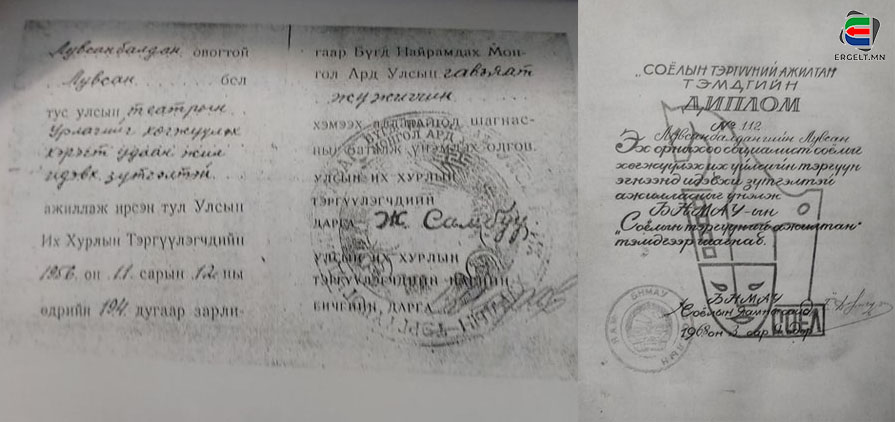 Лувсанбалдан овогтой
Лувсан бол
тус улсын театрын
Урлагийг хөгжүүлэх
хэрэгт удаан жил
идэвх зүтгэлтэй
ажиллаж ирсэн тул Улсын
Их Хурлын Тэргүүлэгчдийн
1956 он 11 сарын 12 ны
өдрийн 194 дугаар зарли-
гаар Бүгд Найрамдах Мон-
гол Ард Улсын гавьяат
жүжигчин
хэмээх алдар
шагнас-
ныг баталж үнэмлэх олгов.
УЛСЫН ИХ ХУРЛЫН
ТЭРГҮҮЛЭГЧДИЙН
ДАРГА Ж. Самбуу
УЛСЫН ИХ ХУРЛЫН
ТЭРГҮҮЛЭГЧДИЙН НАРИЙН
БИЧГИЙН ДАРГА
ERGELT.MN
„СОЁЛЫН ТЭРГҮҮНИЙ АЖИЛТАН"
ТЭМДГИЙН
ДИПЛОМ
№ 112
Лувсанбалдангийн Лувсан
Эх орныхоо социалист соёлыг
хөгжүүлэх их үйлсийн тэргүүн
эгнээнд идэвхи зүтгэлтэй
ажилласныг үнэлж
БНМАУ-ын
"Соёлын тэргүүний ажилтан"
тэмдгээр шагнав.
БНМАУ
Соёлын Яамны сайд
1968 он 3 сар 4 өдөр
СОЁЛ
БНМАУ